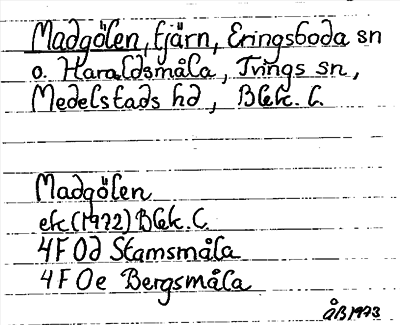 Madgölen, tjärn, Eringsboda sn
o. Haraldsmåla, Tvings sn,
Medelstads hd, Blek. L.
Madgölen
ek (1972) Blek. L.
4F 0d Stamsmåla
4F 0e Bergsmåla
ÅB 1973